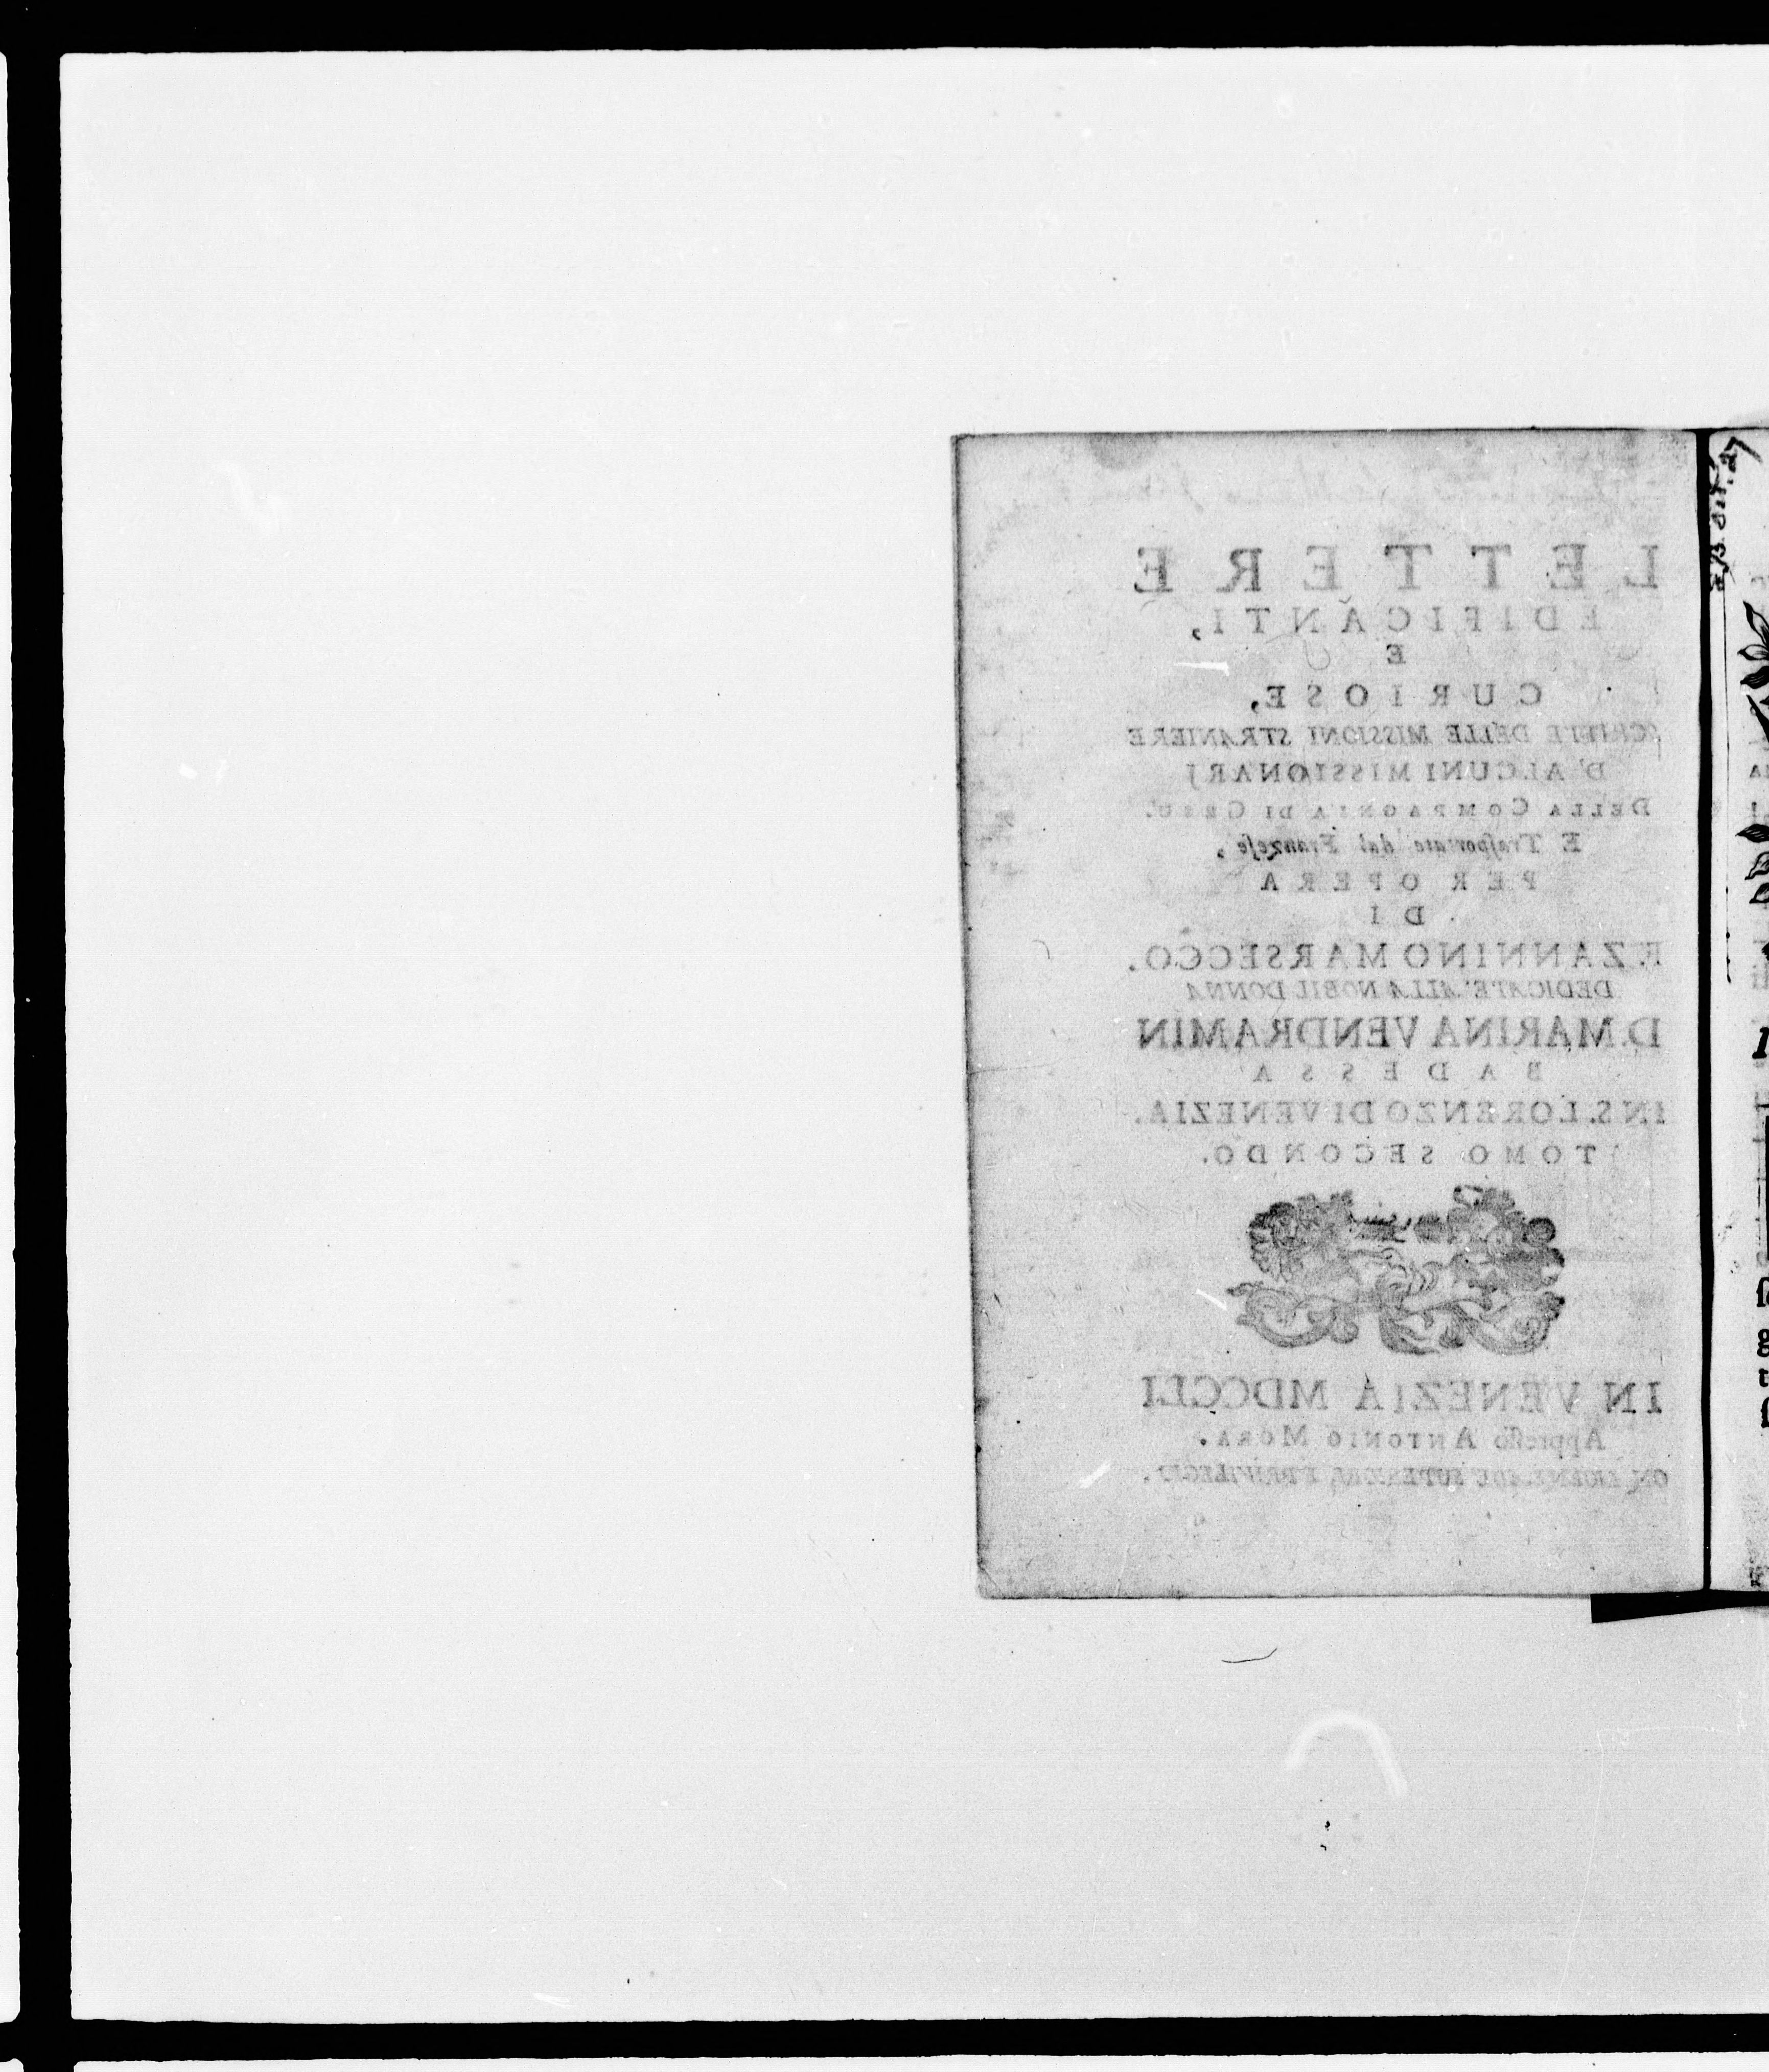 LETTERE
EDIFICANTI,
E
CURIOSE,
SCRITTE DELLE MISSIONI STRANIERE
D'ALCUNI MISSIONARJ
DELLA COMPAGNIA DI GESU'.
E Traſportate dal Franzeſe,
PER OPERA
DI
F. ZANNINO MARSECCO.
DEDICATE ALLA NOBIL DONNA
D. MARINA VENDRAMIN
BADESSA
IN S. LORENZO DI VENEZIA.
TOMO SECONDO.
IN VENEZIA MDCCLI
Appreſſo ANTONIO MORA.
ON LICENZA DE' SUPERIORI, E PRIVILEGIO.